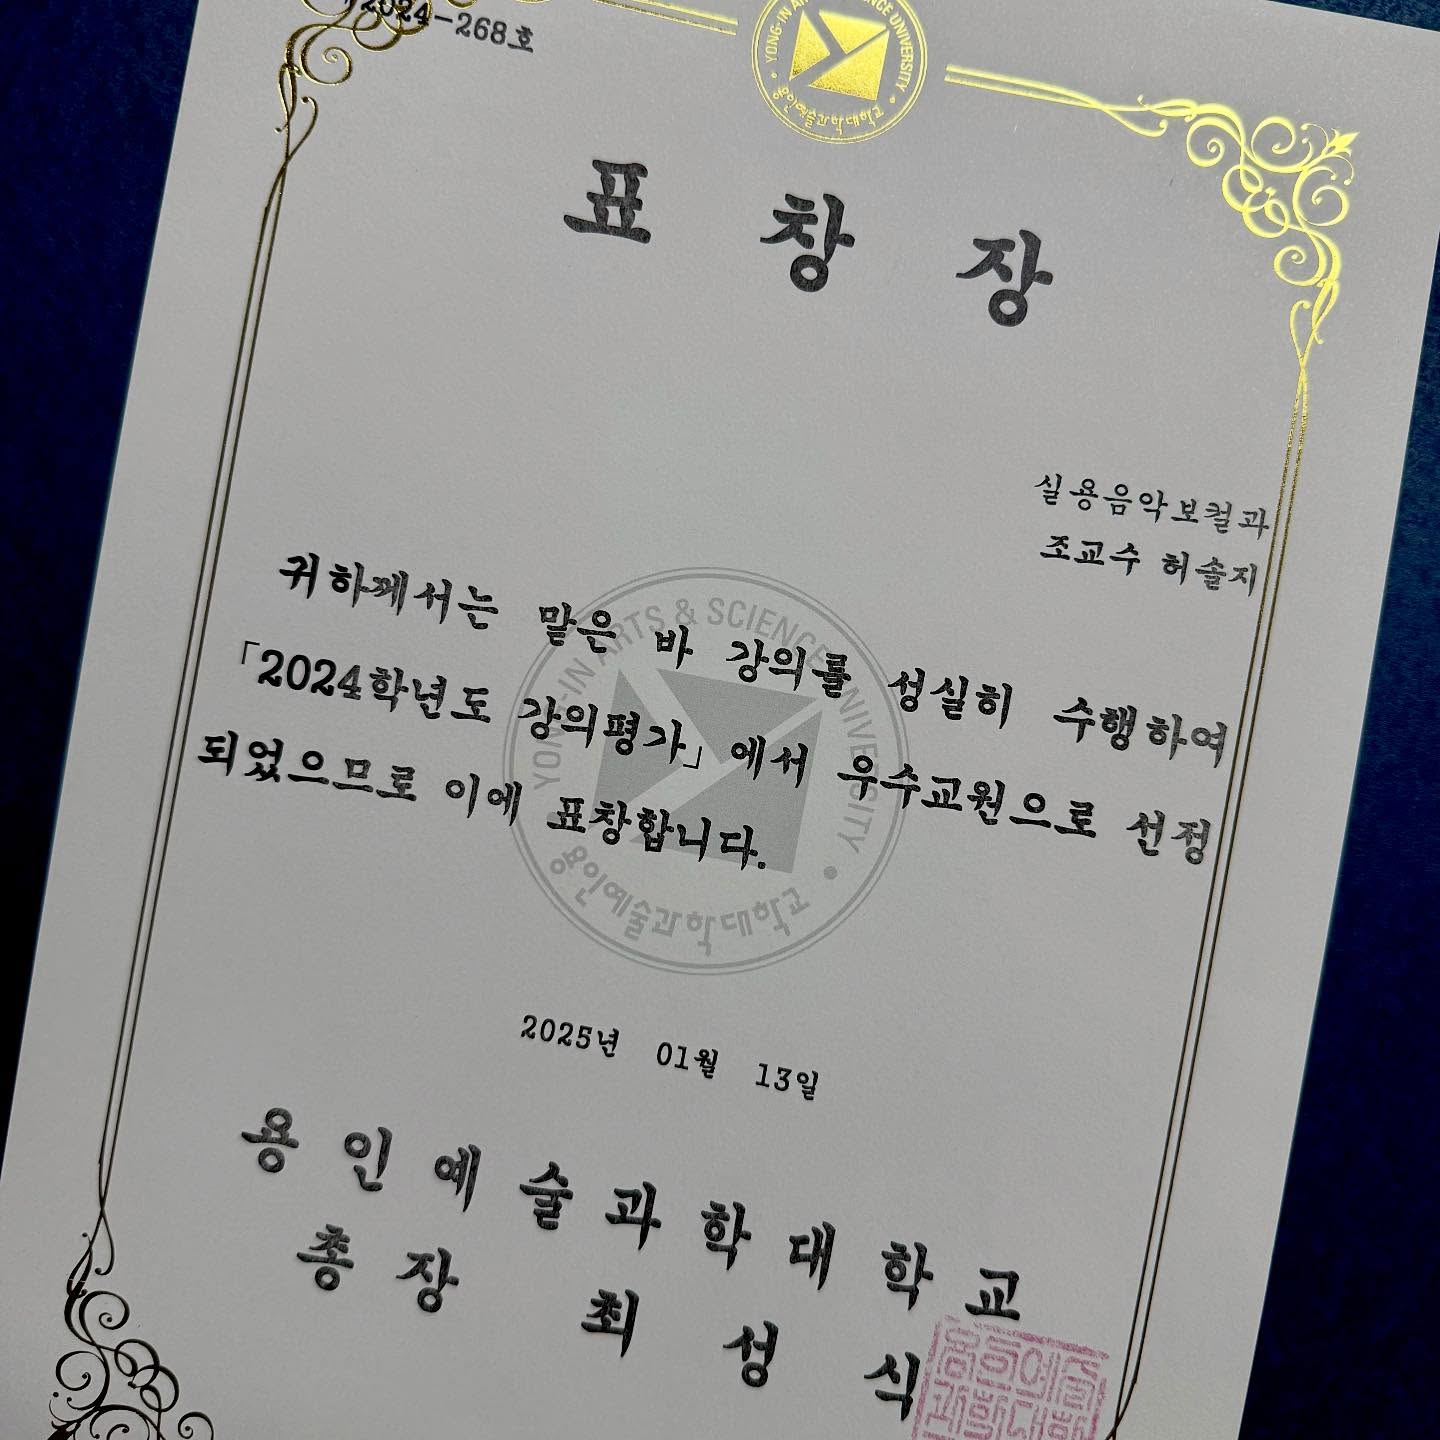 2024-268호
YONG-IN ARTS & SCIENCE UNIVERSITY
용인예술과학대학교
표 창 장
실용음악보컬과
조교수 허솔지
귀하께서는 맡은 바 강의를 성실히 수행하여
「2024학년도 강의평가」에서 우수교원으로 선정
되었으므로 이에 표창합니다.
YONG-IN ARTS & SCIENCE UNIVERSITY
용인예술과학대학교
2025년 01월 13일
용인예술과학대학교
총장 최성식